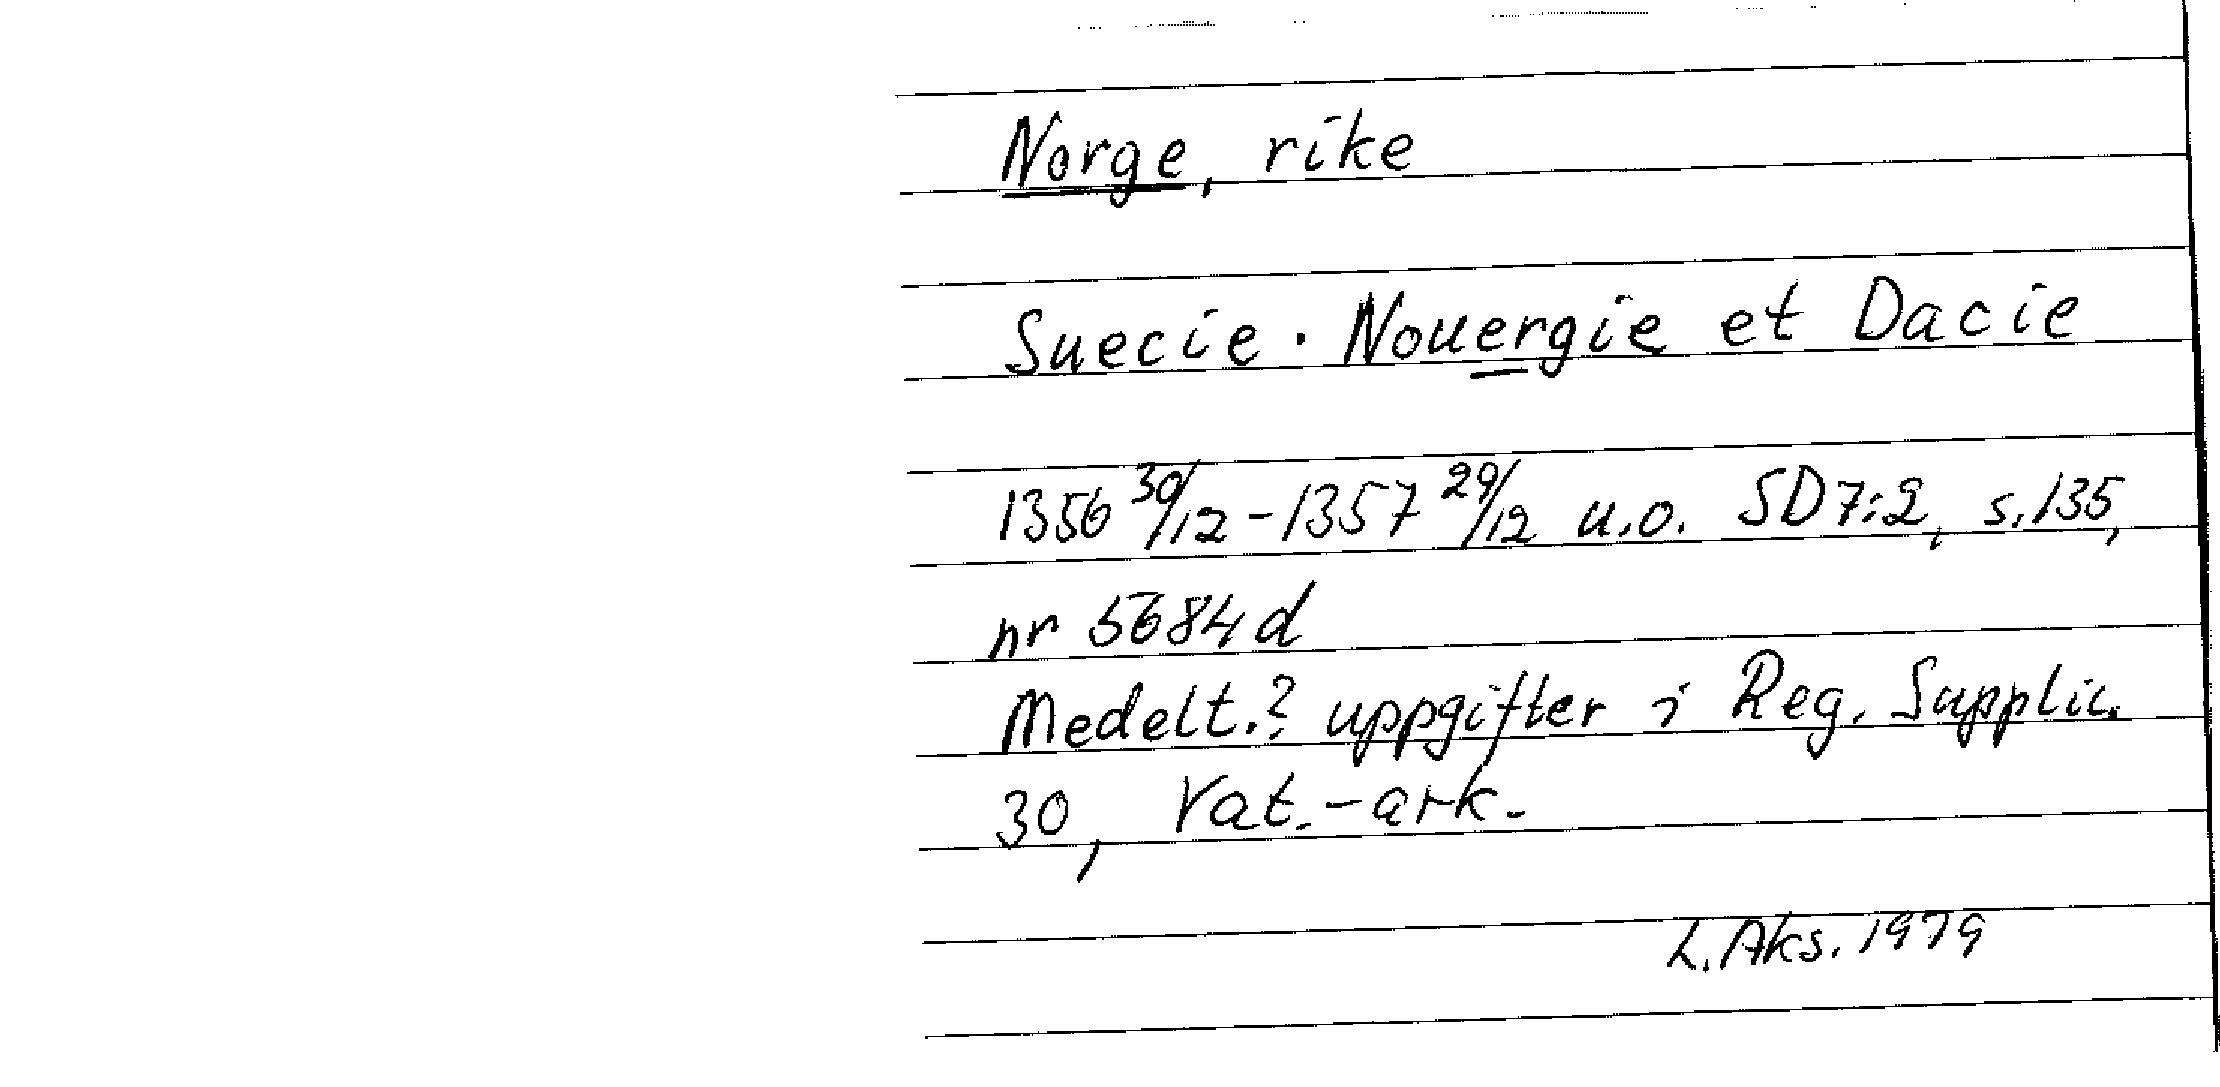 Norge, rike
Suecie · Nouergie et Dacie
1356 30/12 - 1357 29/12 u.o. SD 7:2, s. 135,
nr 5684 d
Medelt.? uppgifter i Reg. Supplic.
30, Vat.-ark.
L. Aks. 1979